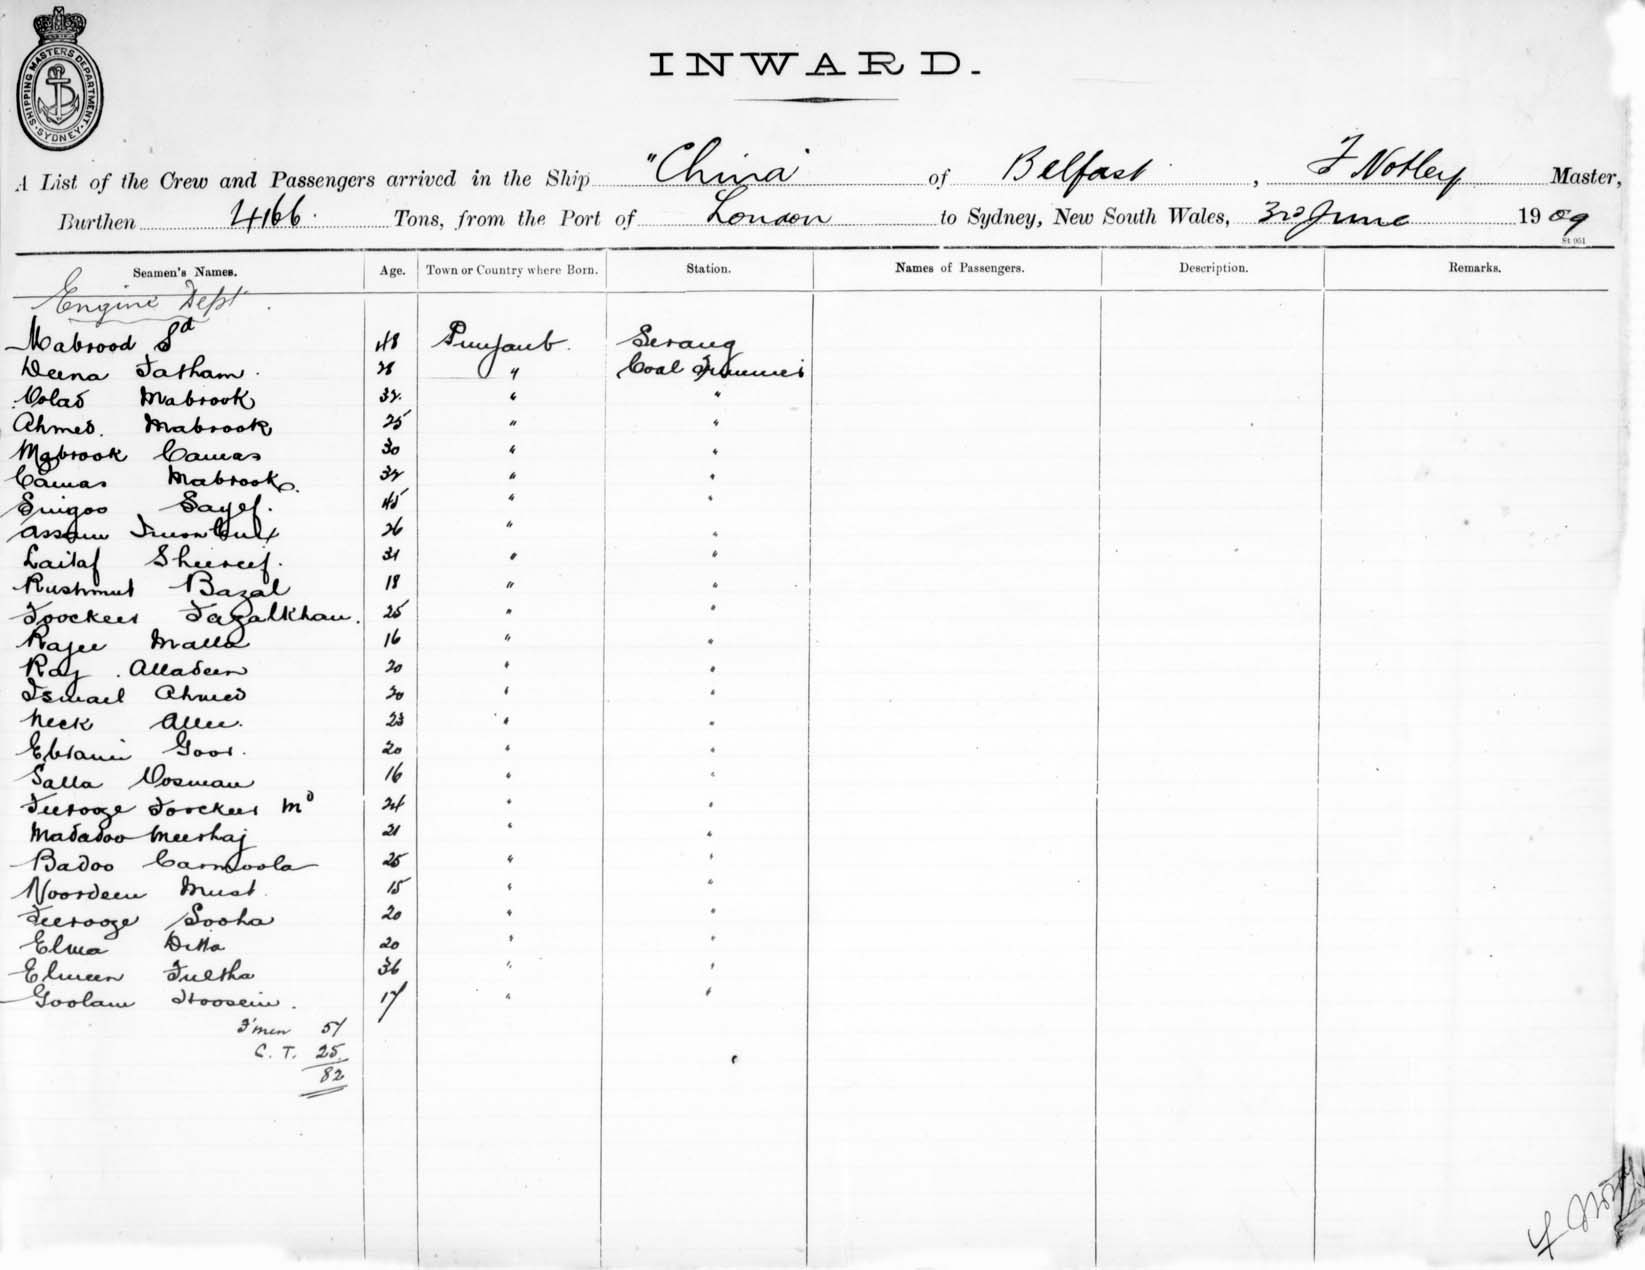 SHIPPING MASTERS DEPARTMENT. SYDNEY
INWARD.
A List of the Crew and Passengers arrived in the Ship "China" of Belfast, F Notley Master,
Burthen 4166. Tons, from the Port of London to Sydney, New South Wales, 3rd June 1909
St 051
Seamen's Names. Age. Town or Country where Born. Station. Names of Passengers. Description. Remarks.
Engine Dept.
Mabrood Sd 48 Punjaub. Serang
Deena Fatham. 28 " Coal Trimmer
Oolad Mabrook 32. " "
Ahmed. Mabrook 25 " "
Mabrook Camas 30 " "
Camas Mabrook. 32 " "
Singoo Sayef. 45 " "
Assam 26 " "
Laitaf Sheereef. 31 " "
Rushmut Bazal 18 " "
Foockeer Fazalkhan. 25 " "
Rajee Malla 16 " "
Raj. Alladeen 20 " "
Ismael Ahmed 30 " "
Neck Allee. 23 " "
Ebraim Goor. 20 " "
Salla Oosman 16 " "
Feerooze Foockeer Md 24 " "
Madadoo Meerhaj 21 " "
Badoo Carmoola 25 " "
Noordeen Must. 15 " "
Feerooze Sooha 20 " "
Elma Ditta 20 " "
Elmeen Fultha 36 " "
Goolam Hoosein. 17 " "
F'men 57
C. T. 25.
82
F Notley